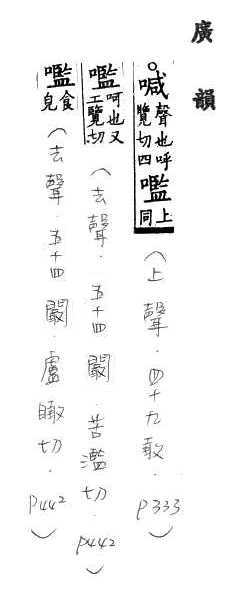 廣韻
。喊聲也呼覽切四嚂上同(上聲.四十九敢.P333)
嚂呵也又工覽切(去聲.五十四闞.苦濫切.P442)
嚂食皃(去聲.五十四闞.盧瞰切.P442)